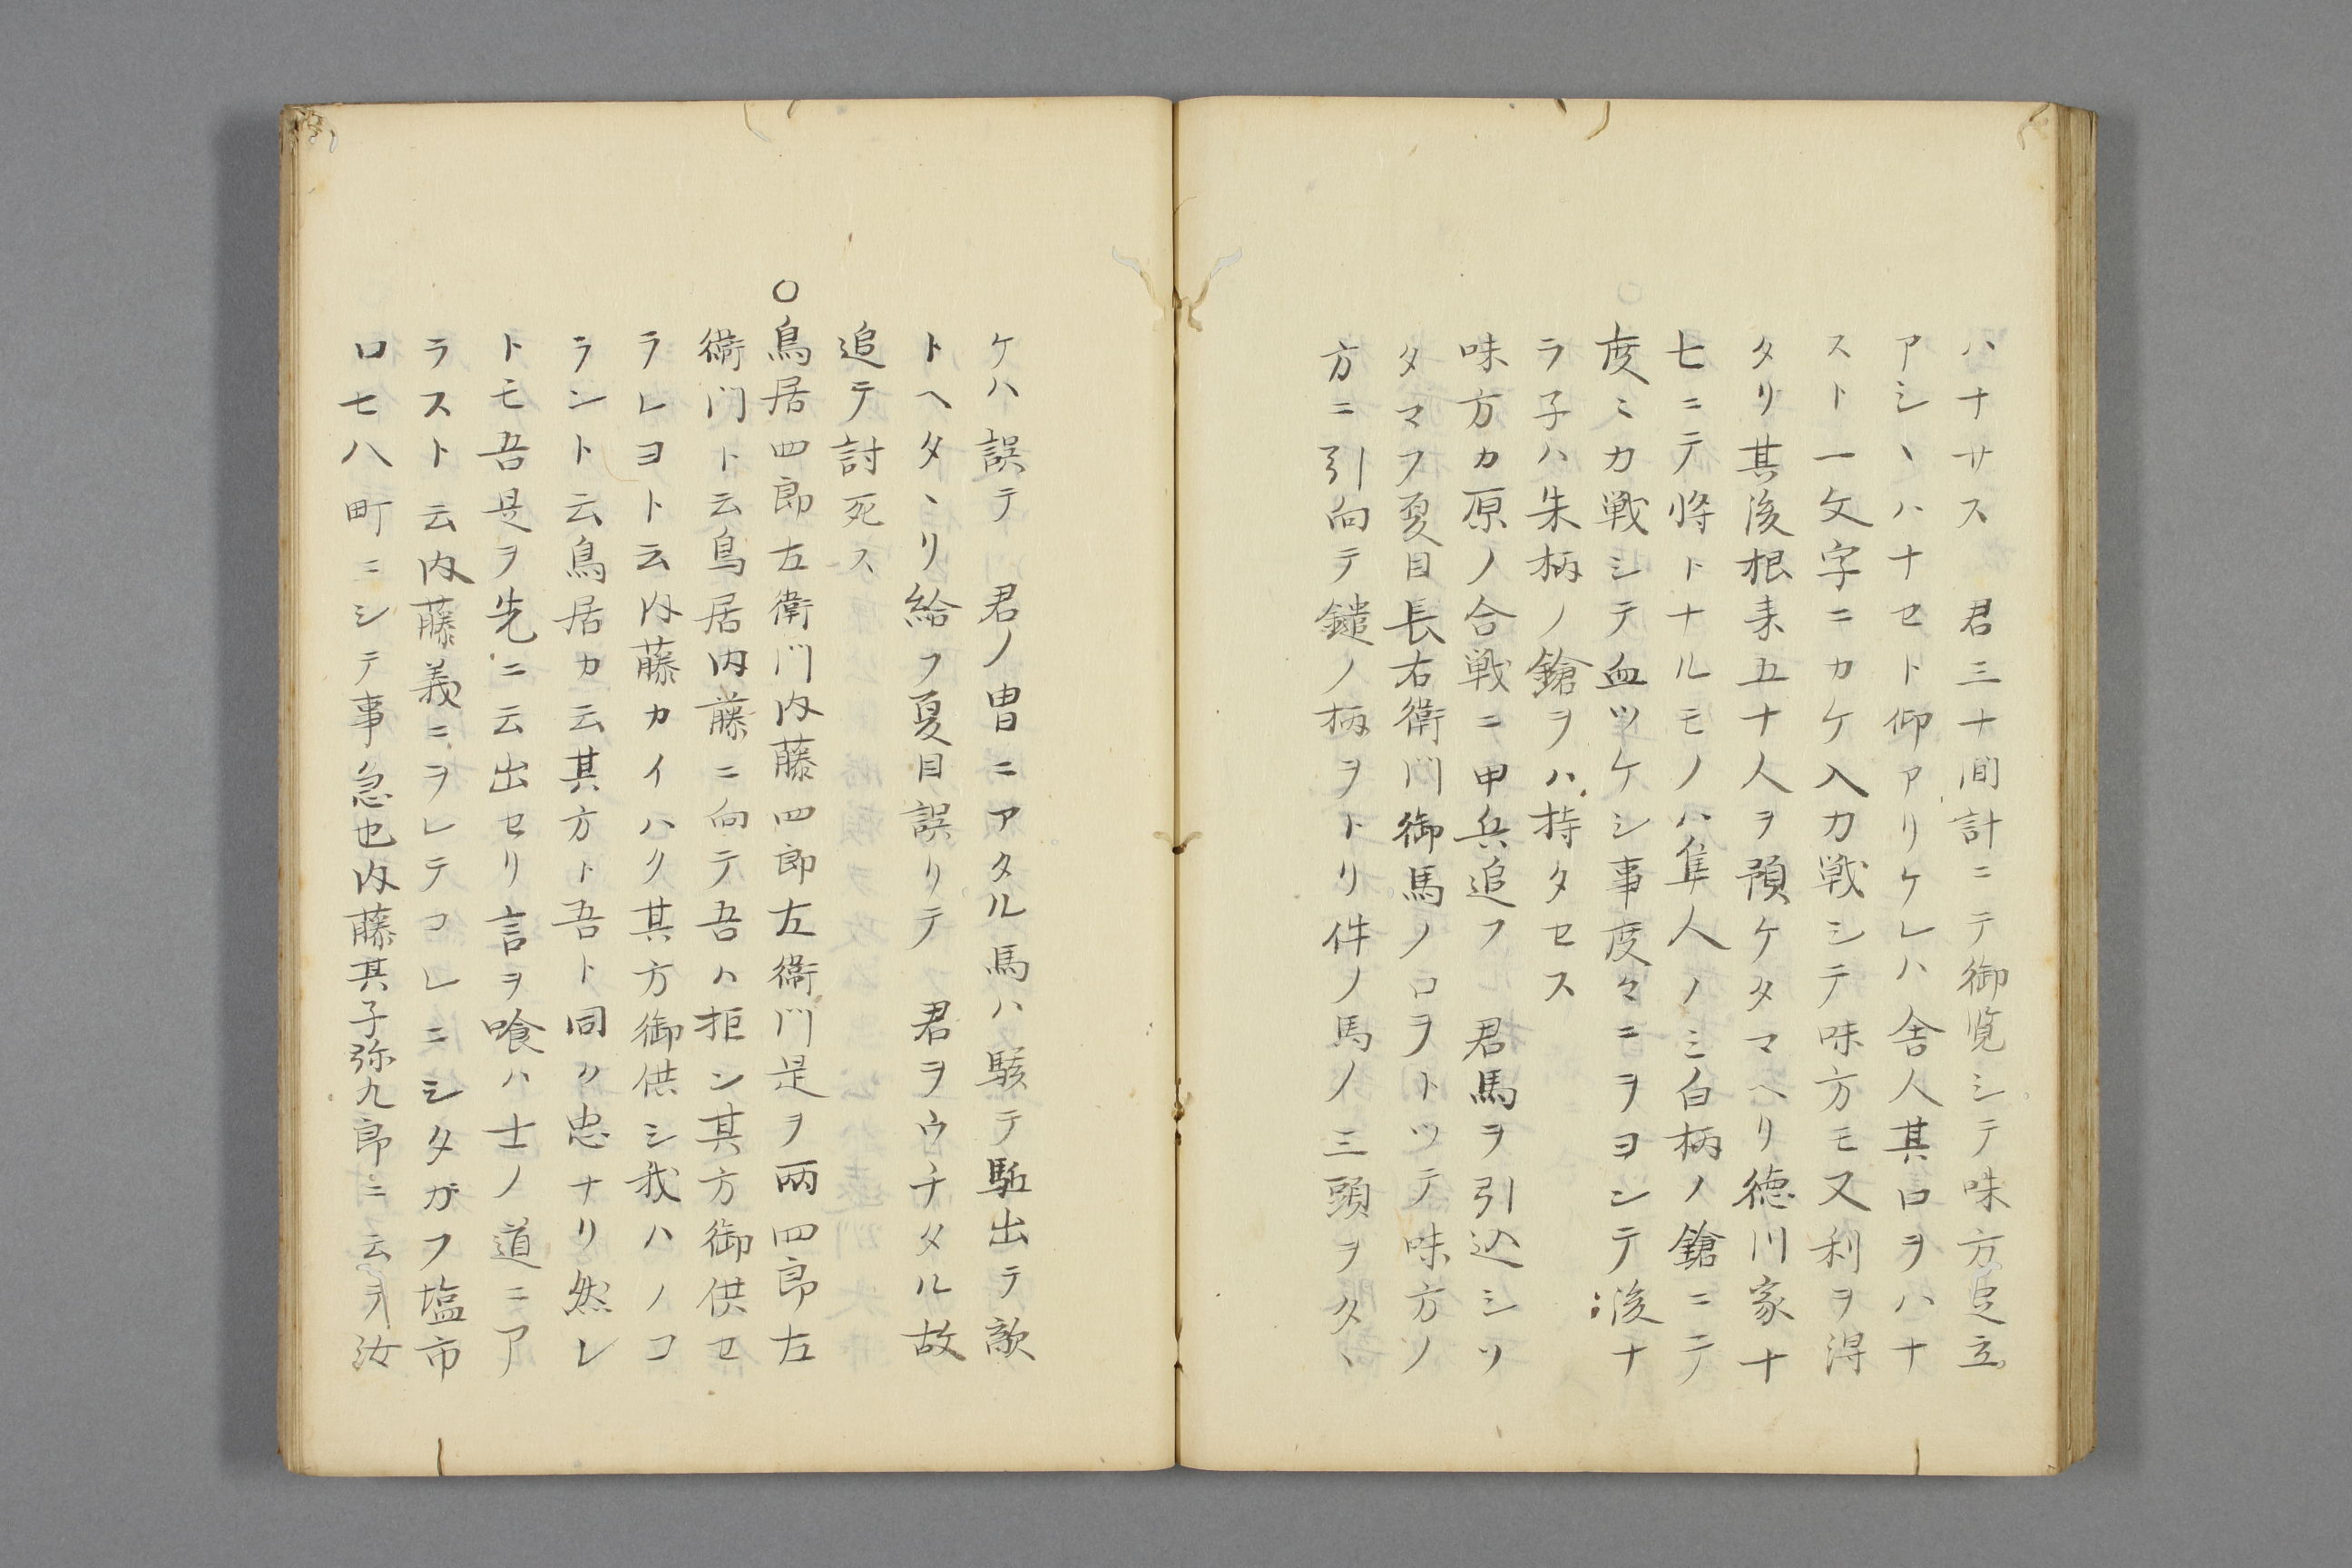 ハナサス　君三十間計ニテ御覧シテ味方足立
アシヽハナセト仰アリケレハ舎人其口ヲハナ
スト一文字ニカケ入力戦シテ味方モ又利ヲ得
タリ其後根来五十人ヲ預ケタマヘリ徳川家十
七ニテ将トナルモノハ隼人ノミ白柄ノ鎗ニテ
度ミカ戦シテ血ツケシ事度々ニヲヨンテ後ナ
ラ子ハ朱柄ノ鎗ヲハ持タセス
味方カ原ノ合戦ニ甲兵追フ　君馬ヲ引込シツ
タマフ夏目長右衛門御馬ノ口ヲトツテ味方ノ
方ニ引向テ鑓ノ柄ヲトリ件ノ馬ノ三頭ヲタヽ
ケハ誤テ　君ノ冑ニアタル馬ハ駭テ駈出テ敵
トヘタヽリ給フ夏目誤リテ　君ヲウチタル故
追テ討死ス
〇鳥居四郎左衛門内藤四郎左衛門是ヲ両四郎左
衛門ト云鳥居内藤ニ向テ吾ハ拒ン其方御供セ
ラレヨト云内藤カイハク其方御供シ我ハノコ
ラント云鳥居カ云其方ト吾ト同ク忠ナリ然レ
トモ吾是ヲ先ニ云出セリ言ヲ喰ハ士ノ道ニア
ラスト云内藤義ニヲレテコレニシタガフ塩市
口七八町ニシテ事急也内藤其子弥九郎ニ云ヲ汝